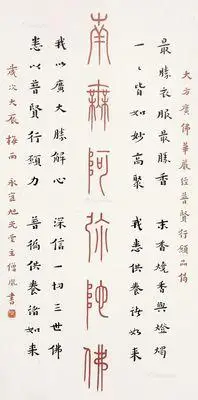 大方廣佛華嚴經普賢行願品偈
最勝衣服最勝香 末香燒香與燈燭
一一皆如妙高聚 我悉供養諸如來
南無阿弥陀佛
我以廣大勝解心 深信一切三世佛
悉以普賢行願力 普徧供養諸如來
歲次 辰梅雨 旭光 主僧 書